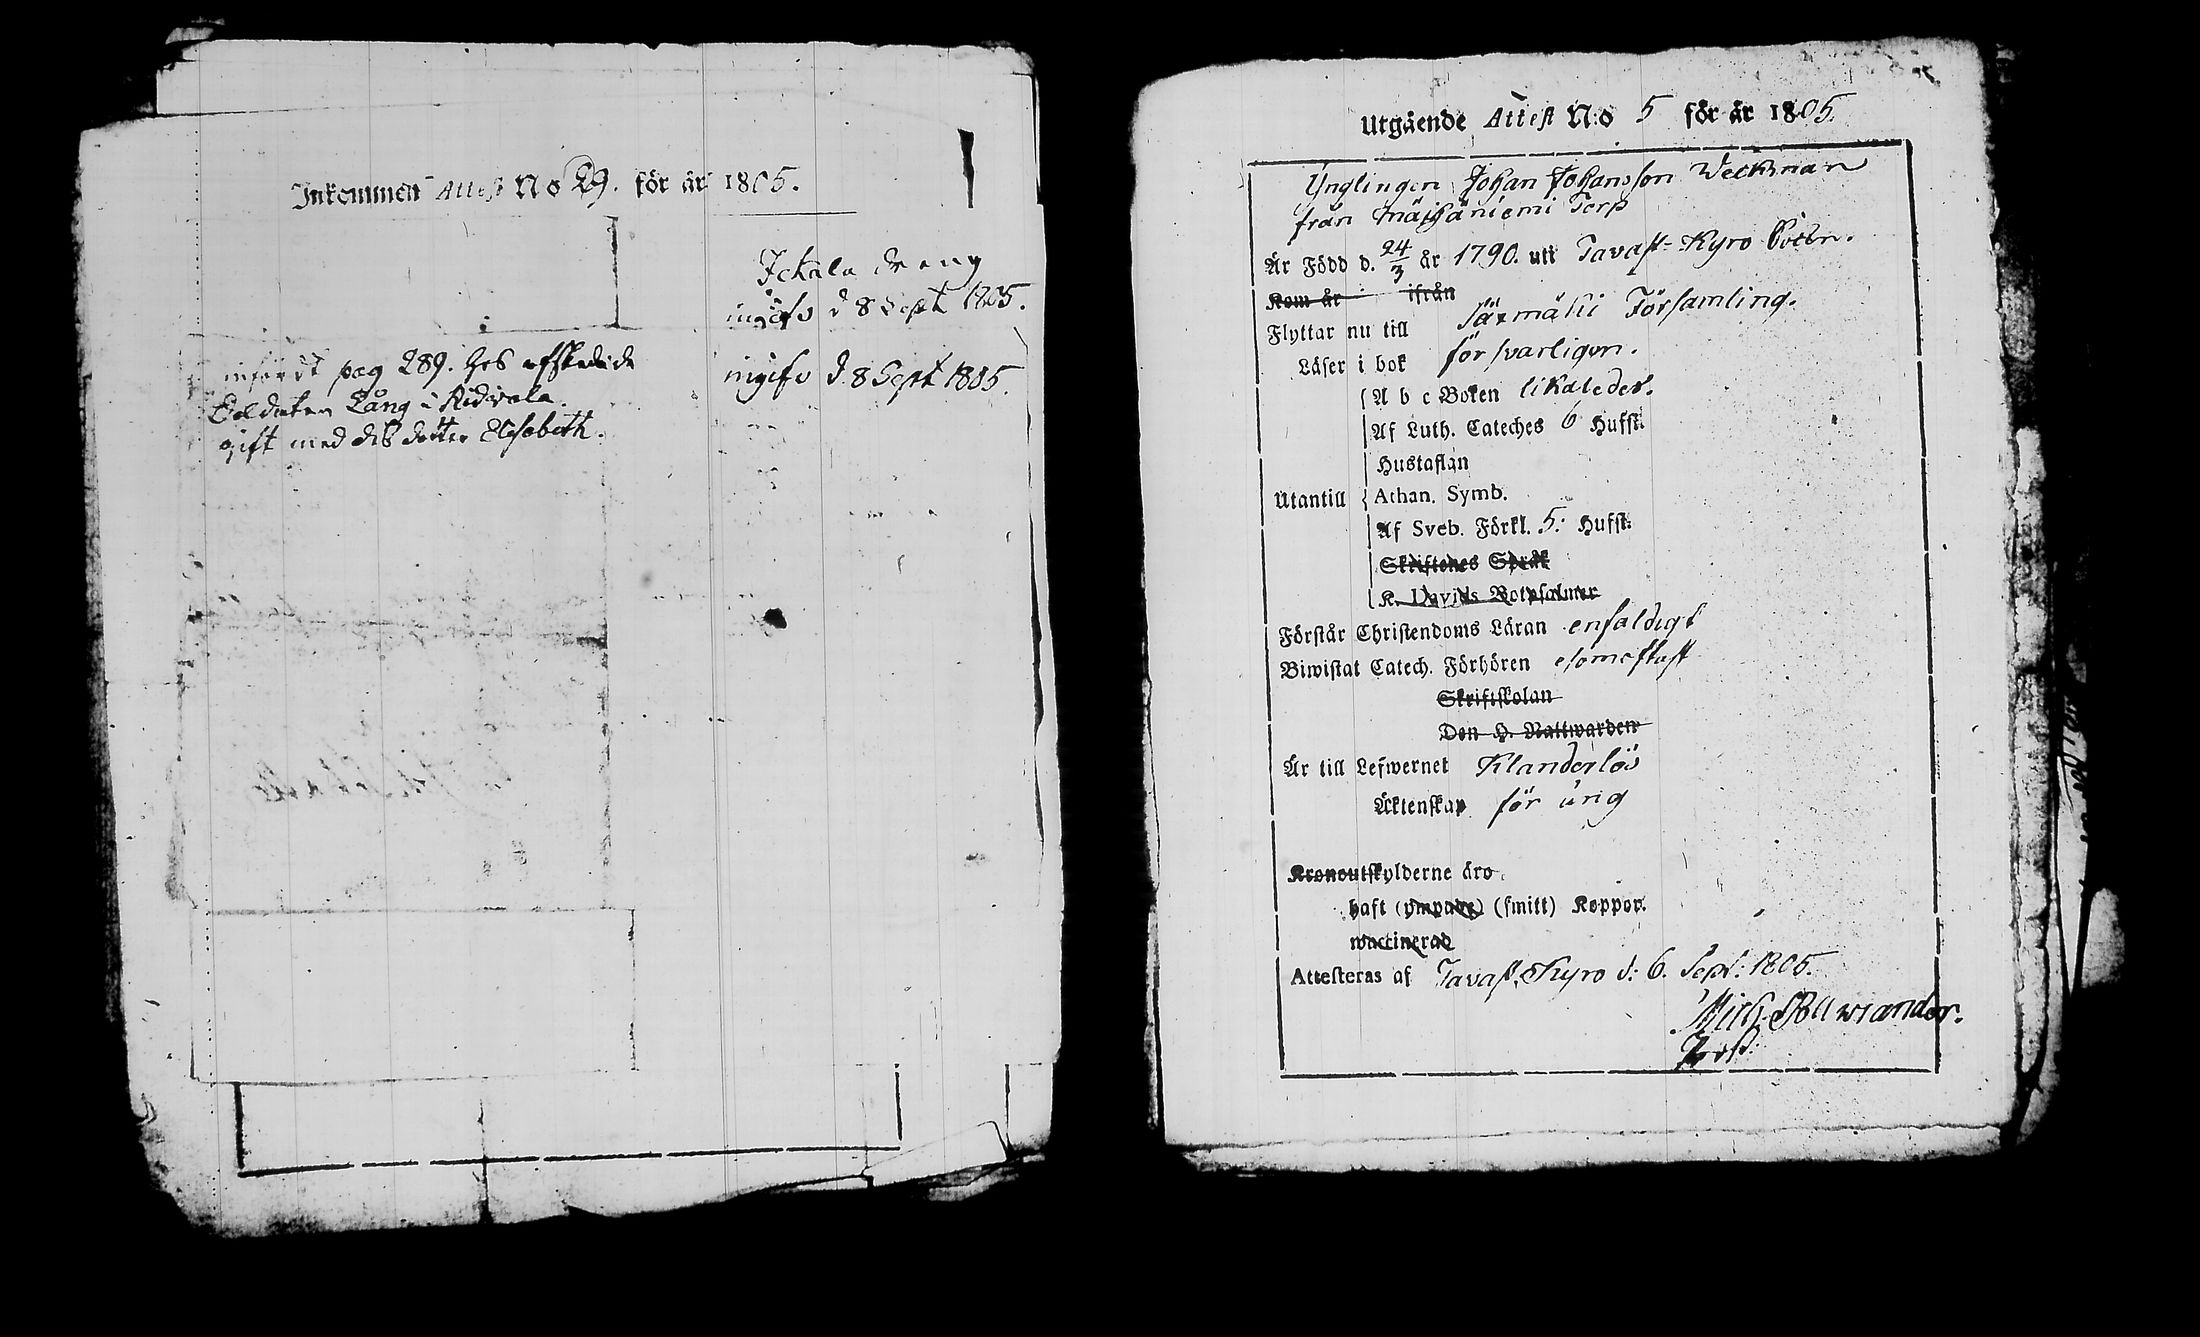 Inkommen Attest No 29. för år 1805.
Ickala dreng
ingifv d 8 Sept 1805.
infördt pag 289. hos afskedade
Soldaten Lång i Ridvala.
gift med des dotter Elisabeth.
ingifv d. 8 Sept 1805
Utgående Attest N:o 5 för år 1805.
Ynglingen Johan Johansson Weckman
från Mäihäniemi Torp
Är Född d. 24/3 år 1790. uti Tavast-Kyro Sockn.
Kom år ifrån
Flyttar nu till Säxmäki Församling.
Läser i bok försvarligen.
A b c Boken likaledes.
Af Luth. Cateches 6 Hufst:
Hustaflan
Utantill Athan. Symb.
Af Sveb. Förkl. 5: Hufst:
Skriftenes Språk
K. Davids Botpsalmer
Förstår Christendoms Läran enfaldigt
Biwistat Catech. Förhören esomoftast
Skriftskolan
Den H. Nattwarden
Är till Lefwernet Klanderlös
Äktenskap för ung
Kronoutskylderne äro
haft (ympade) (smitt) Koppor.
waccinerad
Attesteras af Tavast-Kyro d: 6. Sept: 1805.
Mich.
Prost.